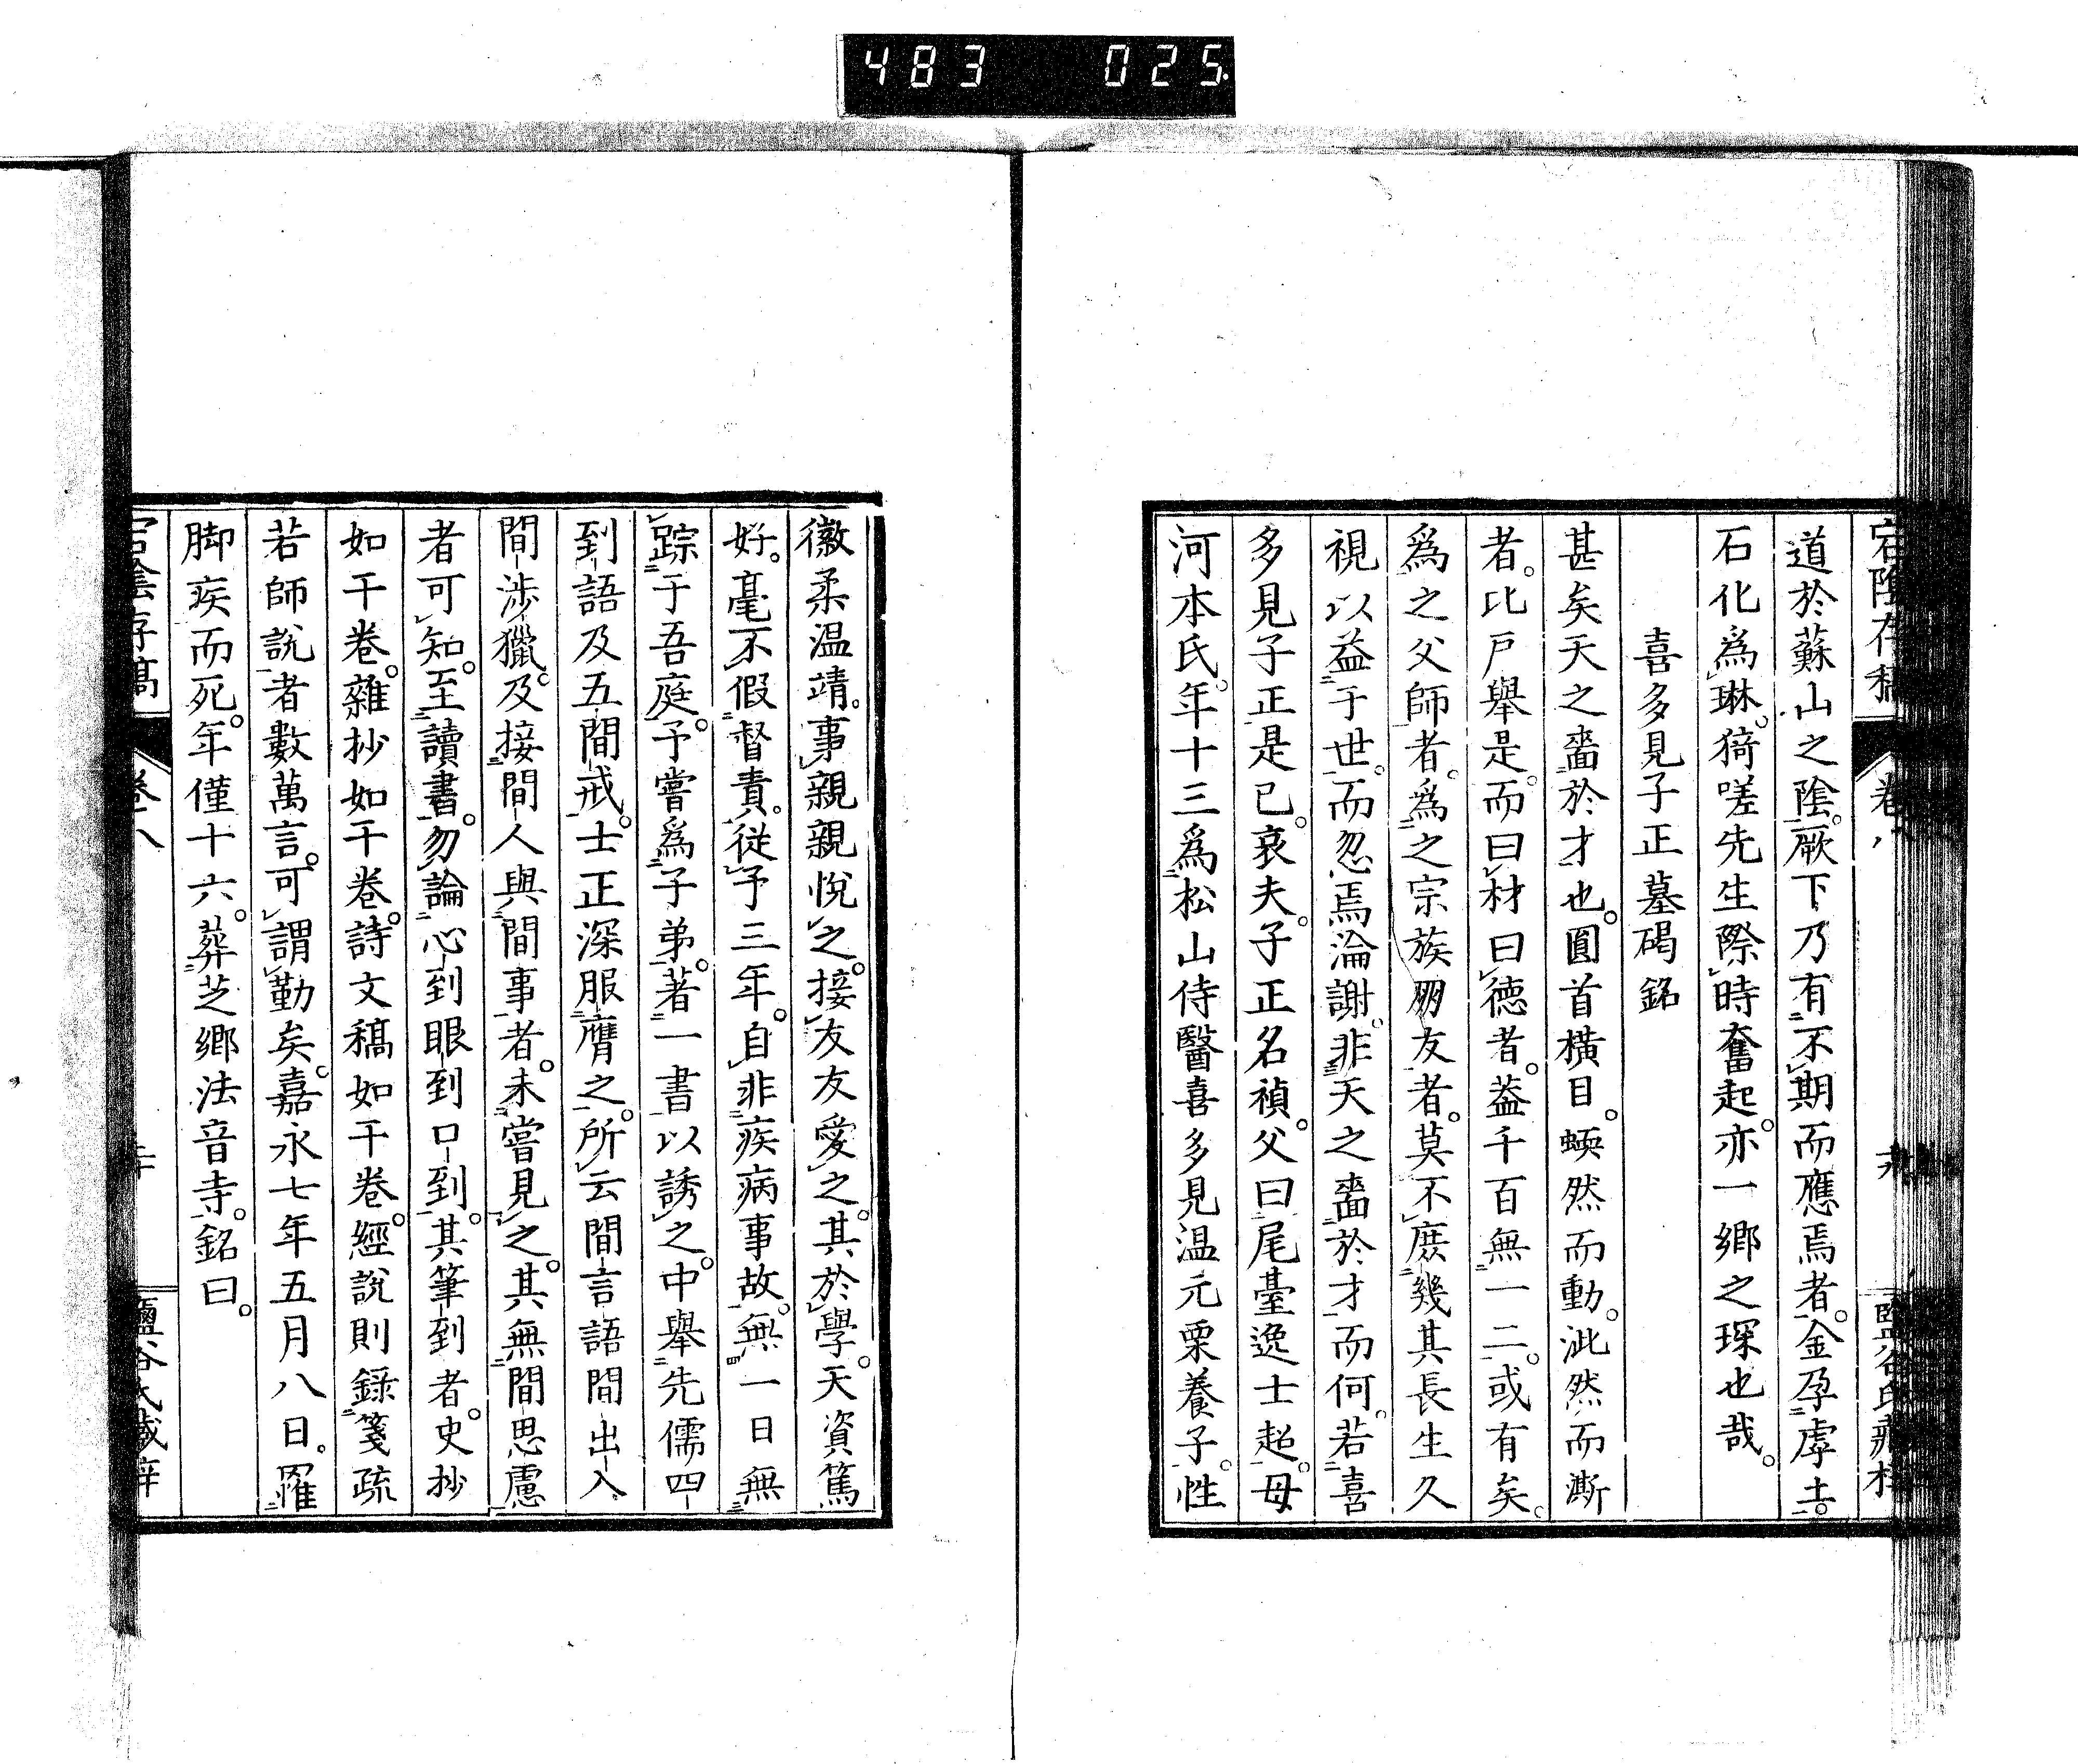 483 025
宕陰存稿 卷八
道於蘇山之陰。厥下乃有不期而應焉者。金孕虖土。
石化爲琳。猗嗟先生際時奮起。亦一鄉之琛也哉。
喜多見子正墓碣銘
甚矣天之嗇於才也。圓首橫目。蝡然而動。泚然而澌
者。比戶舉是。而曰材曰德者。蓋千百無一二。或有矣。
爲之父師者。爲之宗族朋友者。莫不庶幾其長生久
視以益于世。而忽焉淪謝。非天之嗇於才而何。若喜
多見子正是已。哀夫。子正名禎。父曰尾臺逸士超。母
河本氏。年十三爲松山侍醫喜多見温元栗養子。性
徽柔温靖。事親親悅之。接友友愛之。其於學。天資篤
好。毫不假督責。從予三年。自非疾病事故。無一日無
踪于吾庭。予嘗爲子弟。著一書以誘之。中舉先儒四
到語及五間戒。士正深服膺之。所云間言語間出入
間涉獵。及接間人與間事者。未嘗見之。其無間思慮
者可知。至讀書。勿論心到眼到口到。其筆到者。史抄
如干卷。雜抄如干卷。詩文稿如干卷。經說則錄箋疏
若師說者數萬言。可謂勤矣。嘉永七年五月八日。罹
脚疾而死。年僅十六。葬芝鄉法音寺。銘曰。